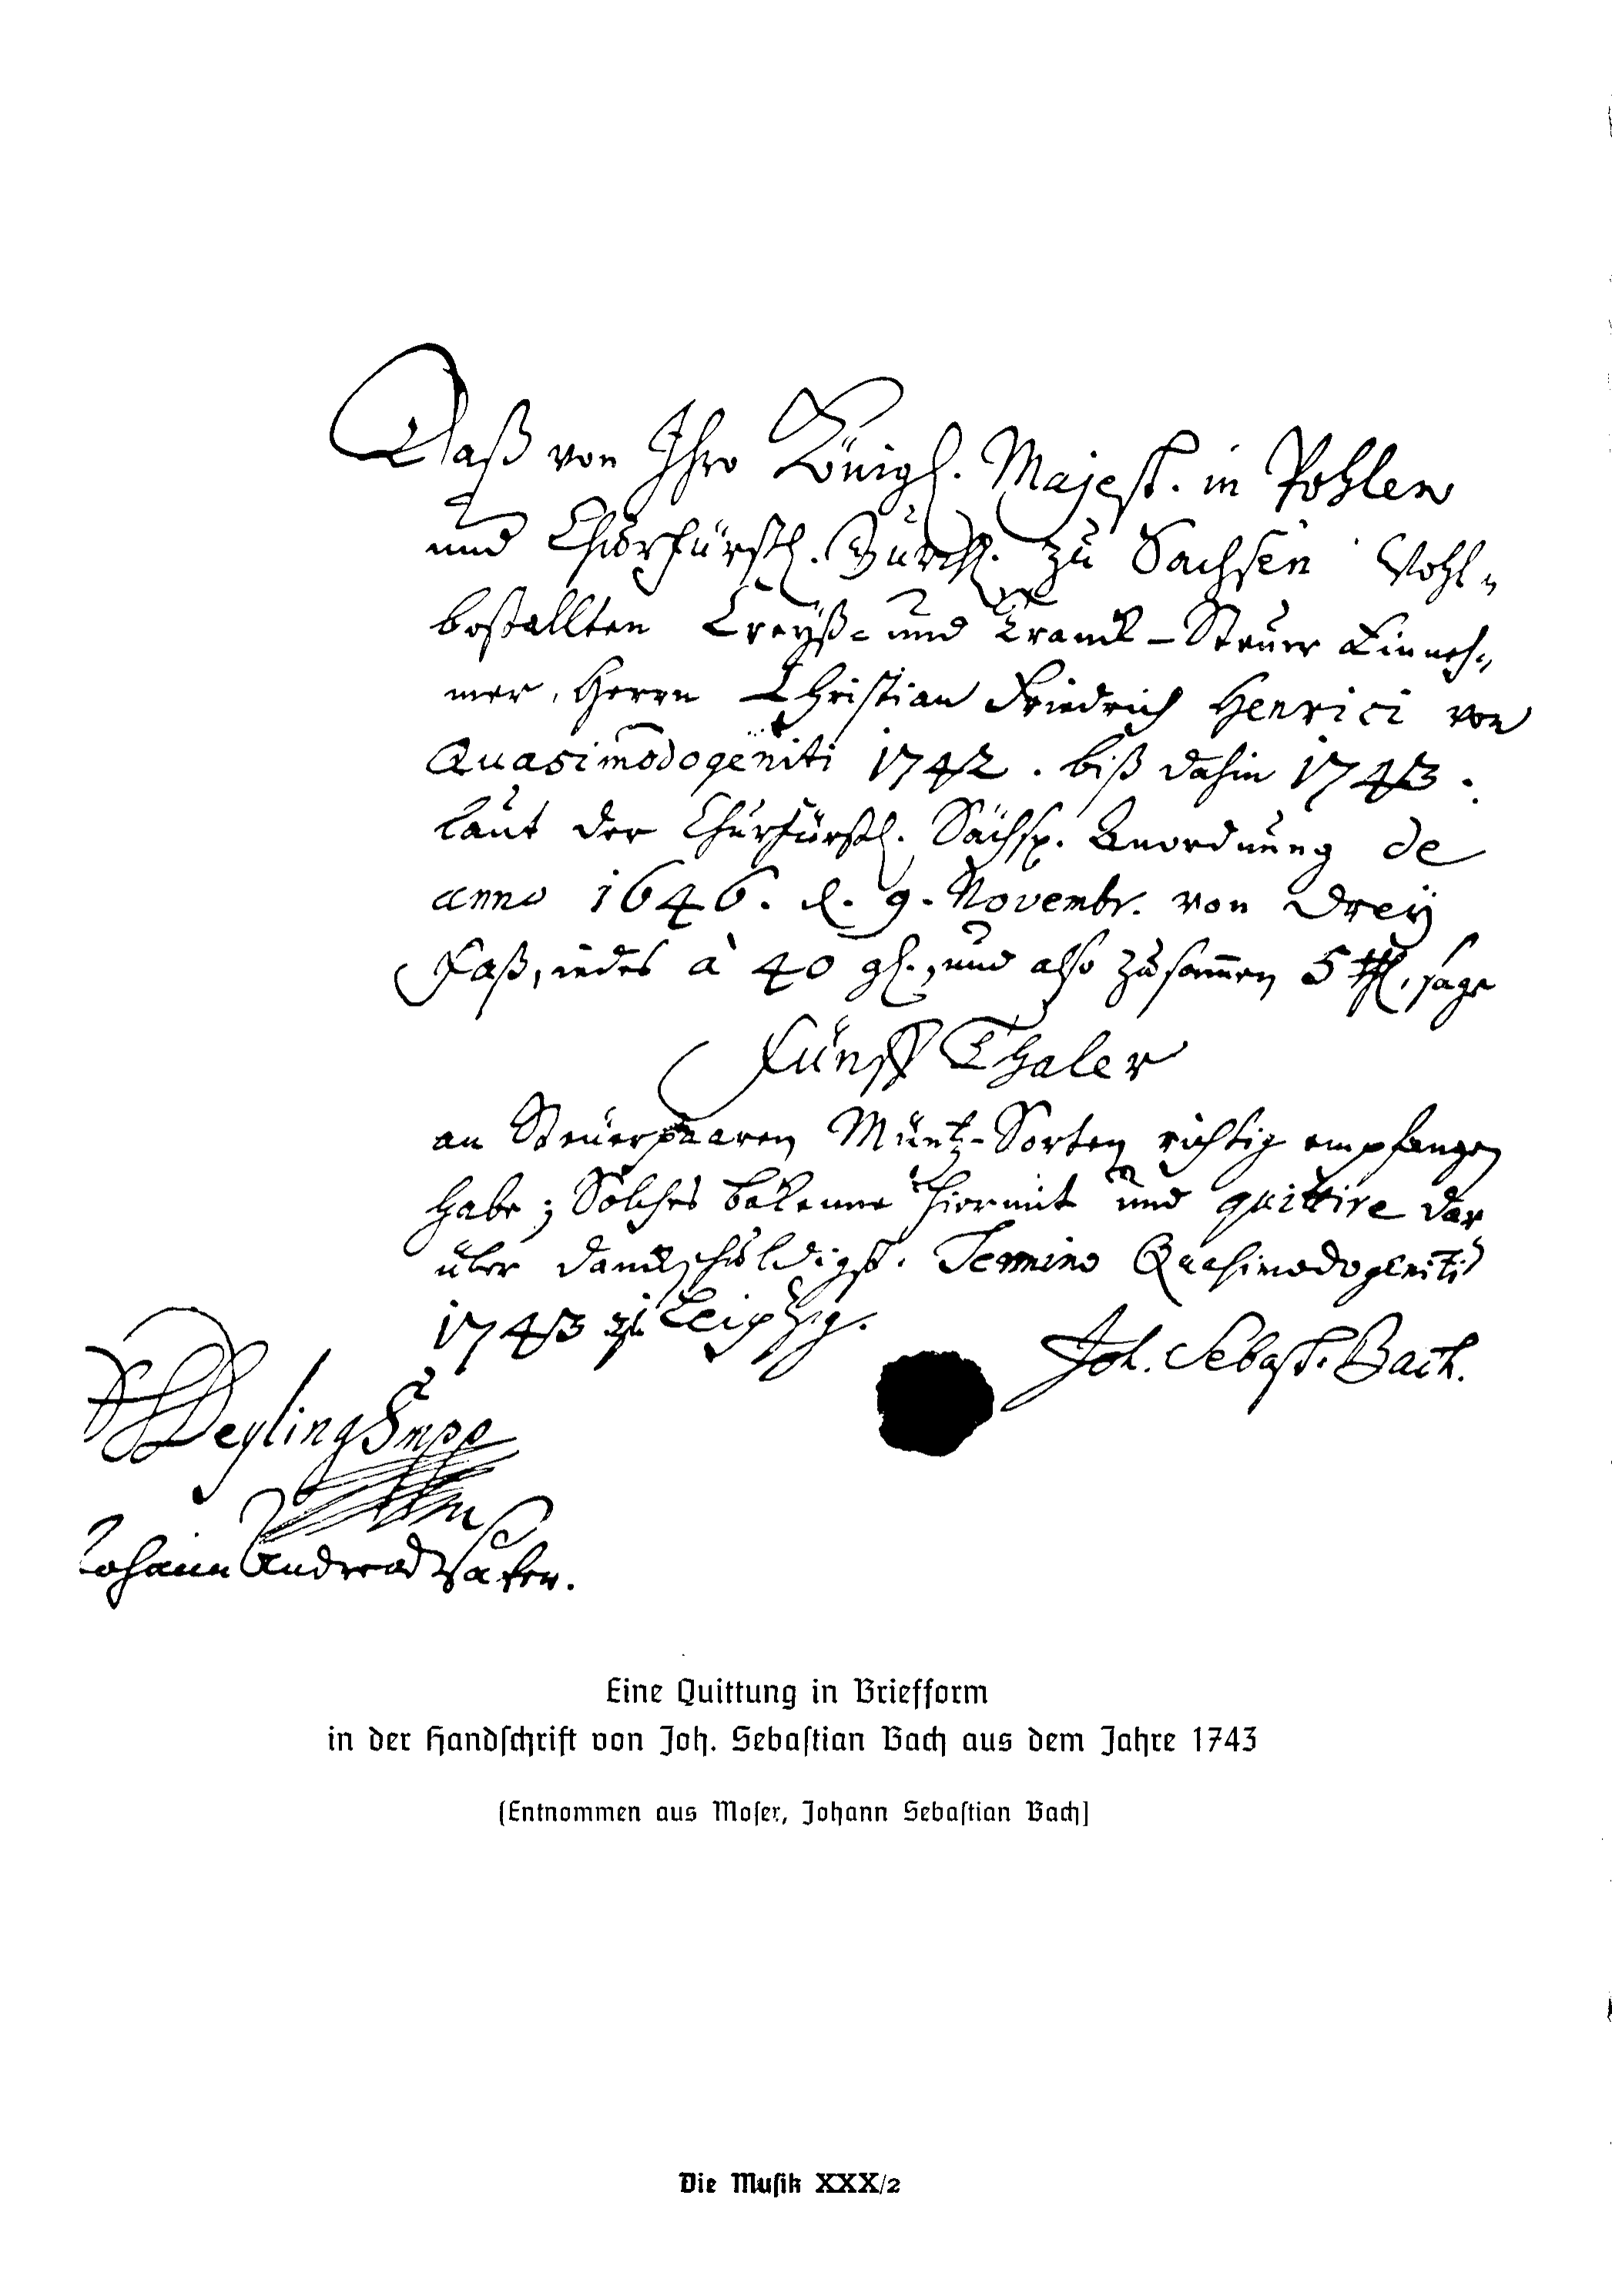 Daß von Ihro Königl. Majest. in Pohlen
und Churfürstl. Durchl. zu Sachsen Wohl-
bestallten Creyß- und Tranck-Steuer Einneh-
mer, Herrn Christian Friedrich Henrici von
Quasimodogeniti 1742. biß dahin 1743.
laut der Churfürstl. Sächß. Anordnung de
anno 1646. d. 9. Novembr. von drey
Faß, iedes à 40 gl., und also zusammen 5 thl. sage
Fünff Thaler
an Steuerpaaren Müntz-Sorten richtig empfangen
habe; Solches bekenne hiermit und quittire dar
über danckschuldigst. Termino Quasimodogeniti
1743 zu Leipzig.
Joh. Sebast. Bach.
Deyling mpp
Johann Andreas
Eine Quittung in Briefform
in der Handſchrift von Joh. Sebaſtian Bach aus dem Jahre 1743
(Entnommen aus Moſer, Johann Sebaſtian Bach)
Die Muſik XXX/2